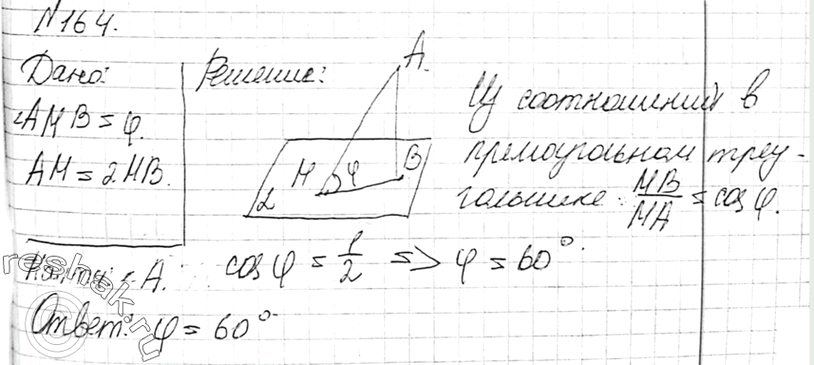 №164.
Дано:
∠AMB = φ.
AM = 2MB.
∠A.
Решение:
A
B
M
φ
α
Из соотношений в
прямоугольном треу-
гольнике: MB/MA = cos φ.
cos φ = 1/2 => φ = 60°.
Ответ: φ = 60°
reshak.ru